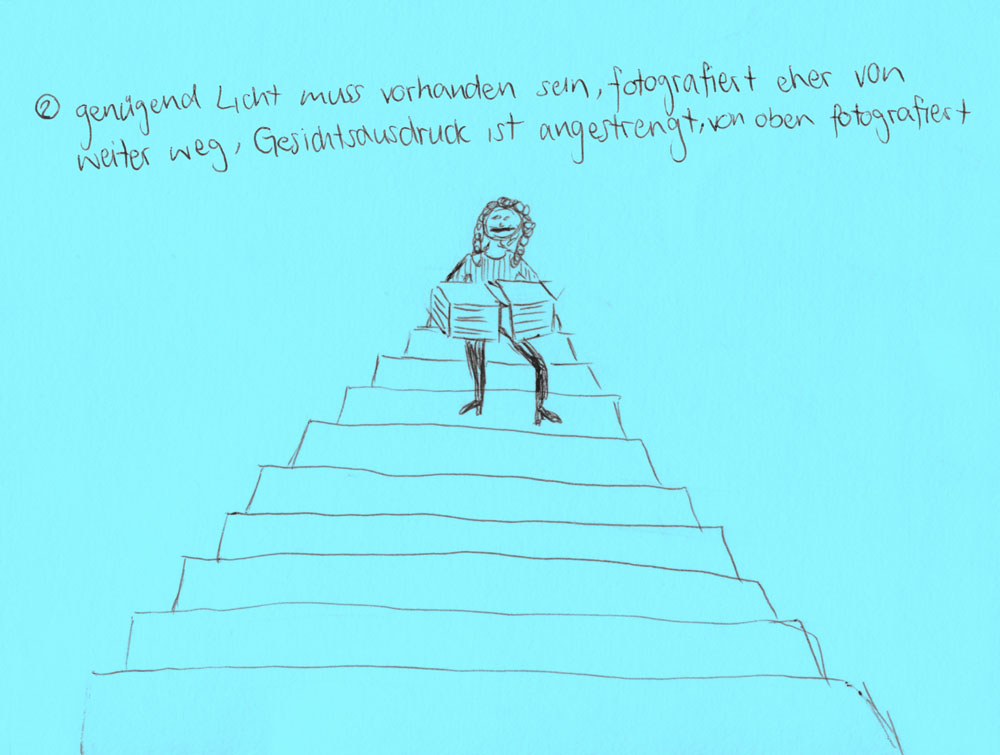 ② genügend Licht muss vorhanden sein, fotografiert eher von
weiter weg, Gesichtsausdruck ist angestrengt, von oben fotografiert